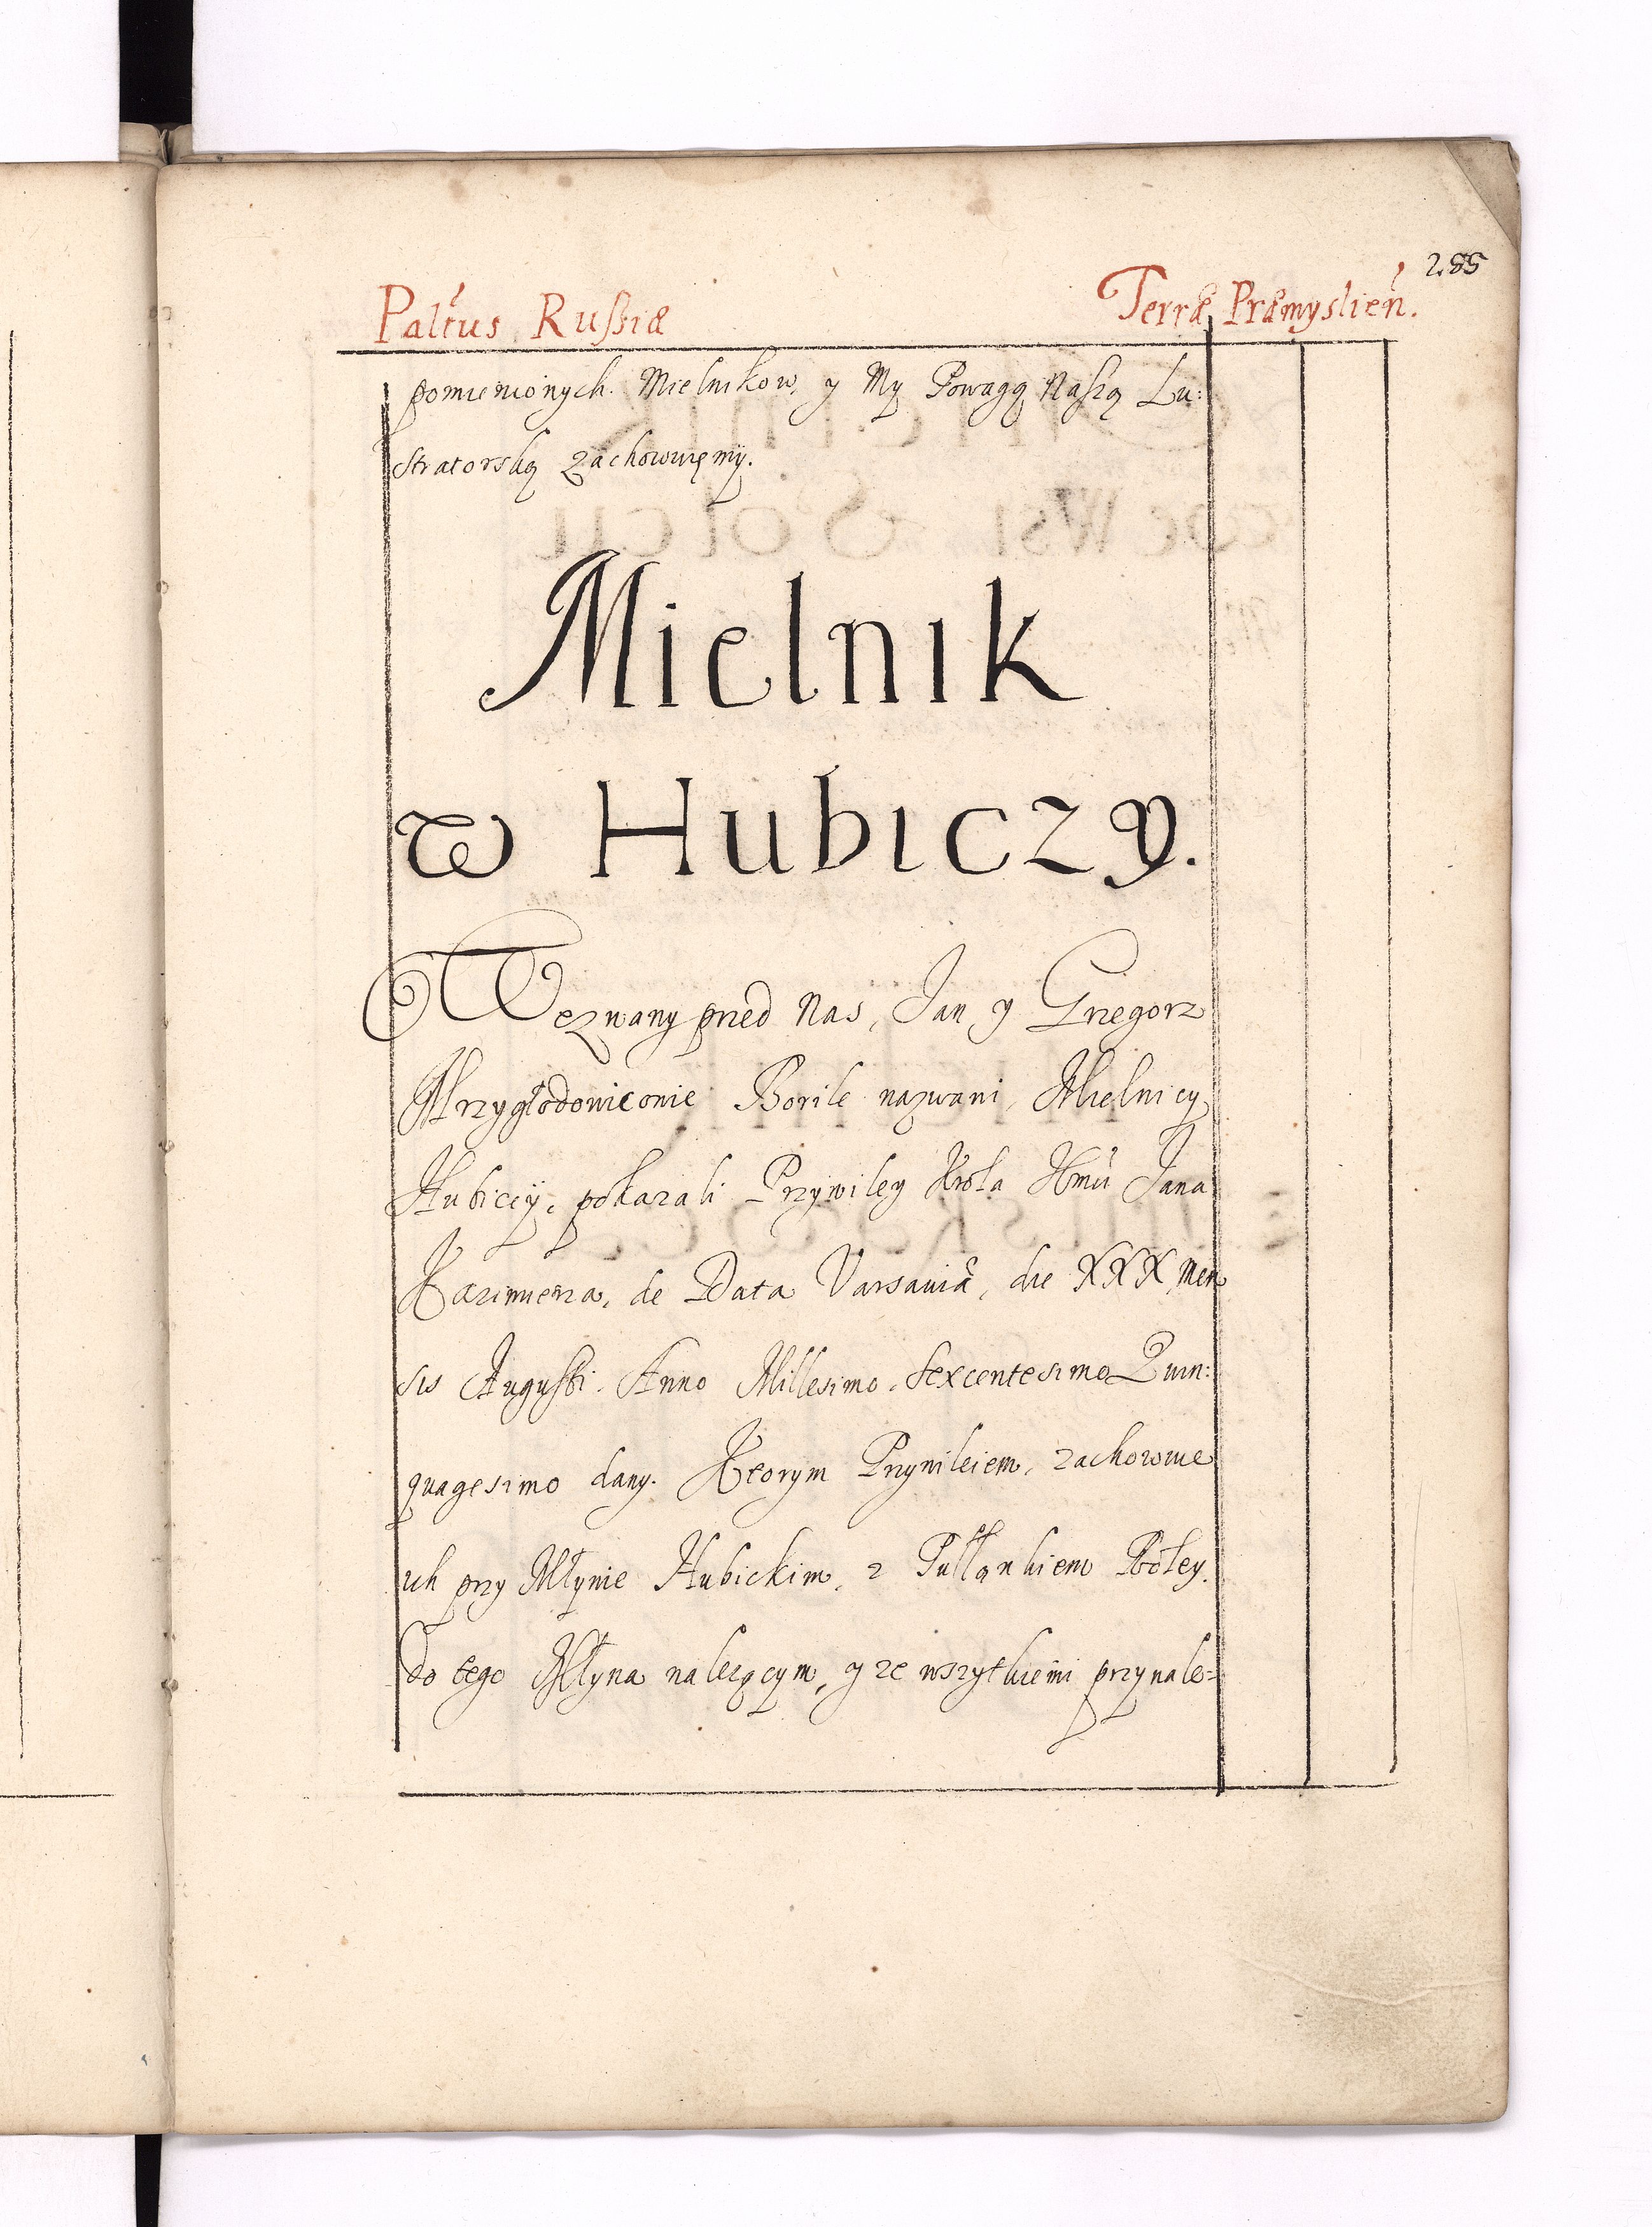 285
Palt̃us Russiæ Terræ Præmyslien̄.
pomienionych Mielnikow, y My Powagą Naszą Lu:
stratorską zachowuięmÿ.
Mielnik
w Hubiczy.
Wezwany przed Nas, Jan y Grzegorz
Przygłodowiconie Borile nazwani, Mielnicy
Hubiccÿ, pokazali Przywiley Krola Jana
Kazimierza, de Data Varsaviæ, die XXX Men
sis Augusti. Anno Millesimo, Sexcentesimo Quin:
quagesimo dany. Ktorym Przywileiem, zachowuie
ich przy Młynie Hubickim, z Pułłankiem Roley
do tego Młyna nalezącym, y ze wszytkiemi przynale=